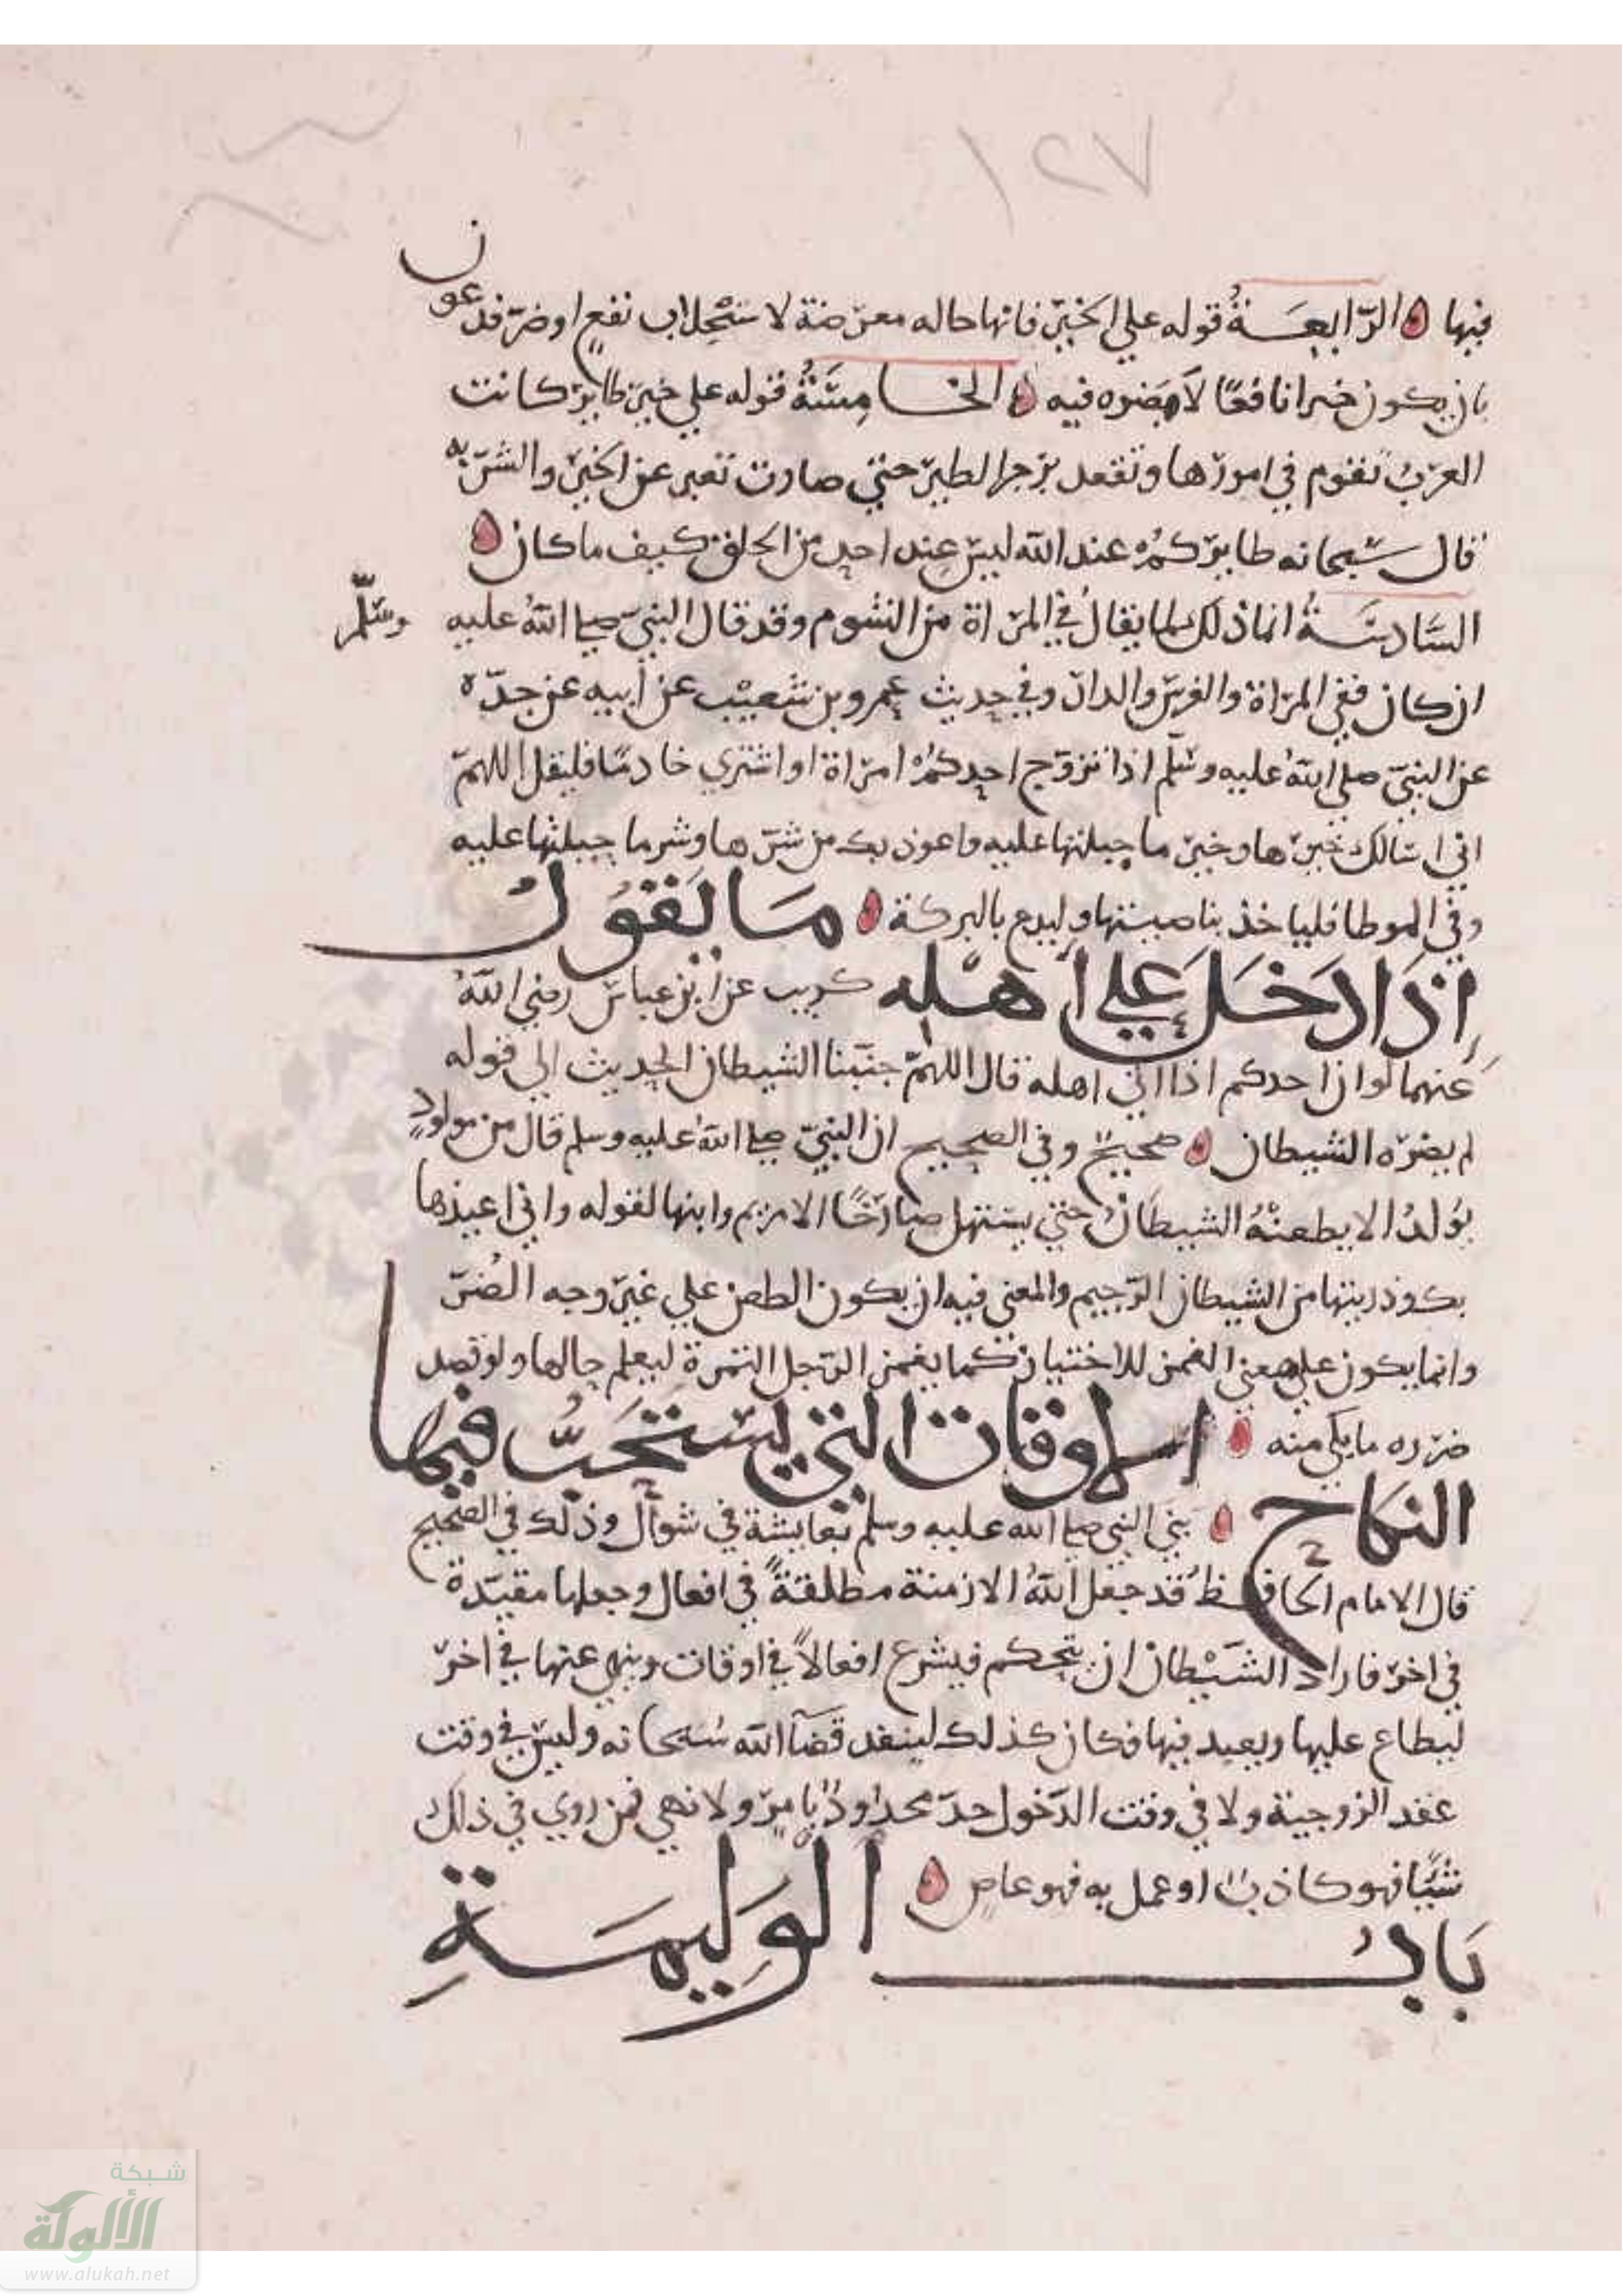 ١٢٧
فيها الرّابعة قوله على الخير فانها حاله معرضة لاستجلاب نفع او ضر فدعون
بان يكون خيرا نافعا لا مضره فيه الخامسة قوله على خير طاير كانت
العرب تقوم في امورها وتقعد بزجر الطير حتى صارت تعبر عن الخير والشر به
قال سبحانه طايركم عند الله ليس عند احد من الخلق كيف ما كان
السادسة انما ذلك لما يقال في المراة من الشوم وقد قال النبي صلى الله عليه وسلم
ان كان ففي المراة والفرس والدار وفي حديث عمرو بن شعيب عن أبيه عن جدّه
عن النبي صلى الله عليه وسلم اذا تزوّج احدكم امراة او اشتري خادمًا فليقل اللهمّ
اني اسالك خيرها وخير ما جبلتها عليه واعوذ بك من شرّها وشر ما جبلتها عليه
وفي الموطا فلياخذ بناصيتها وليدع بالبركة ما يقول
إذا دخل على أهله كريب عن ابن عباس رضي الله
عنهما لو ان احدكم اذا اتى اهله قال اللهمّ جنبنا الشيطان الحديث الى قوله
لم يضرّه الشيطان صحيح وفي الصحيح ان النبيّ صلى الله عليه وسلم قال من مولودٍ
يولد الا يطعنه الشيطان حتى يستهل صارخًا الا مريم وابنها لقوله واني اعيذها
بك وذريتها من الشيطان الرّجيم والمعنى فيه ان يكون الطعن على غير وجه الضرّ
وانما يكون على معنى الغمز للاختبار كما يغمز الرّجل الثمرة ليعلم حالها ولو قصد
ضرره ما بكى منه الاوقات التي يستحبّ فيها
النكاح بنى النبي صلى الله عليه وسلم بعايشة في شوال وذلك في الصحيح
قال الامام الحافظ قد جعل الله الازمنة مطلقة في افعال وجعلها مقيّدة
في اخر فاراد الشيطان ان يتحكم فيشرع افعالاً في اوقات وينهى عنها في اخر
ليطاع عليها ويعبد فيها فكان كذلك لينفد قضآ الله سبحانه وليس في وقت
عقد الزوجية ولا في وقت الدّخول حدّ محدود بامرٍ ولا نهي فمن روي في ذلك
شيًا فهو كاذب او عمل به فهو عاصٍ
باب الوليمة
شبكة
الألوكة
www.alukah.net